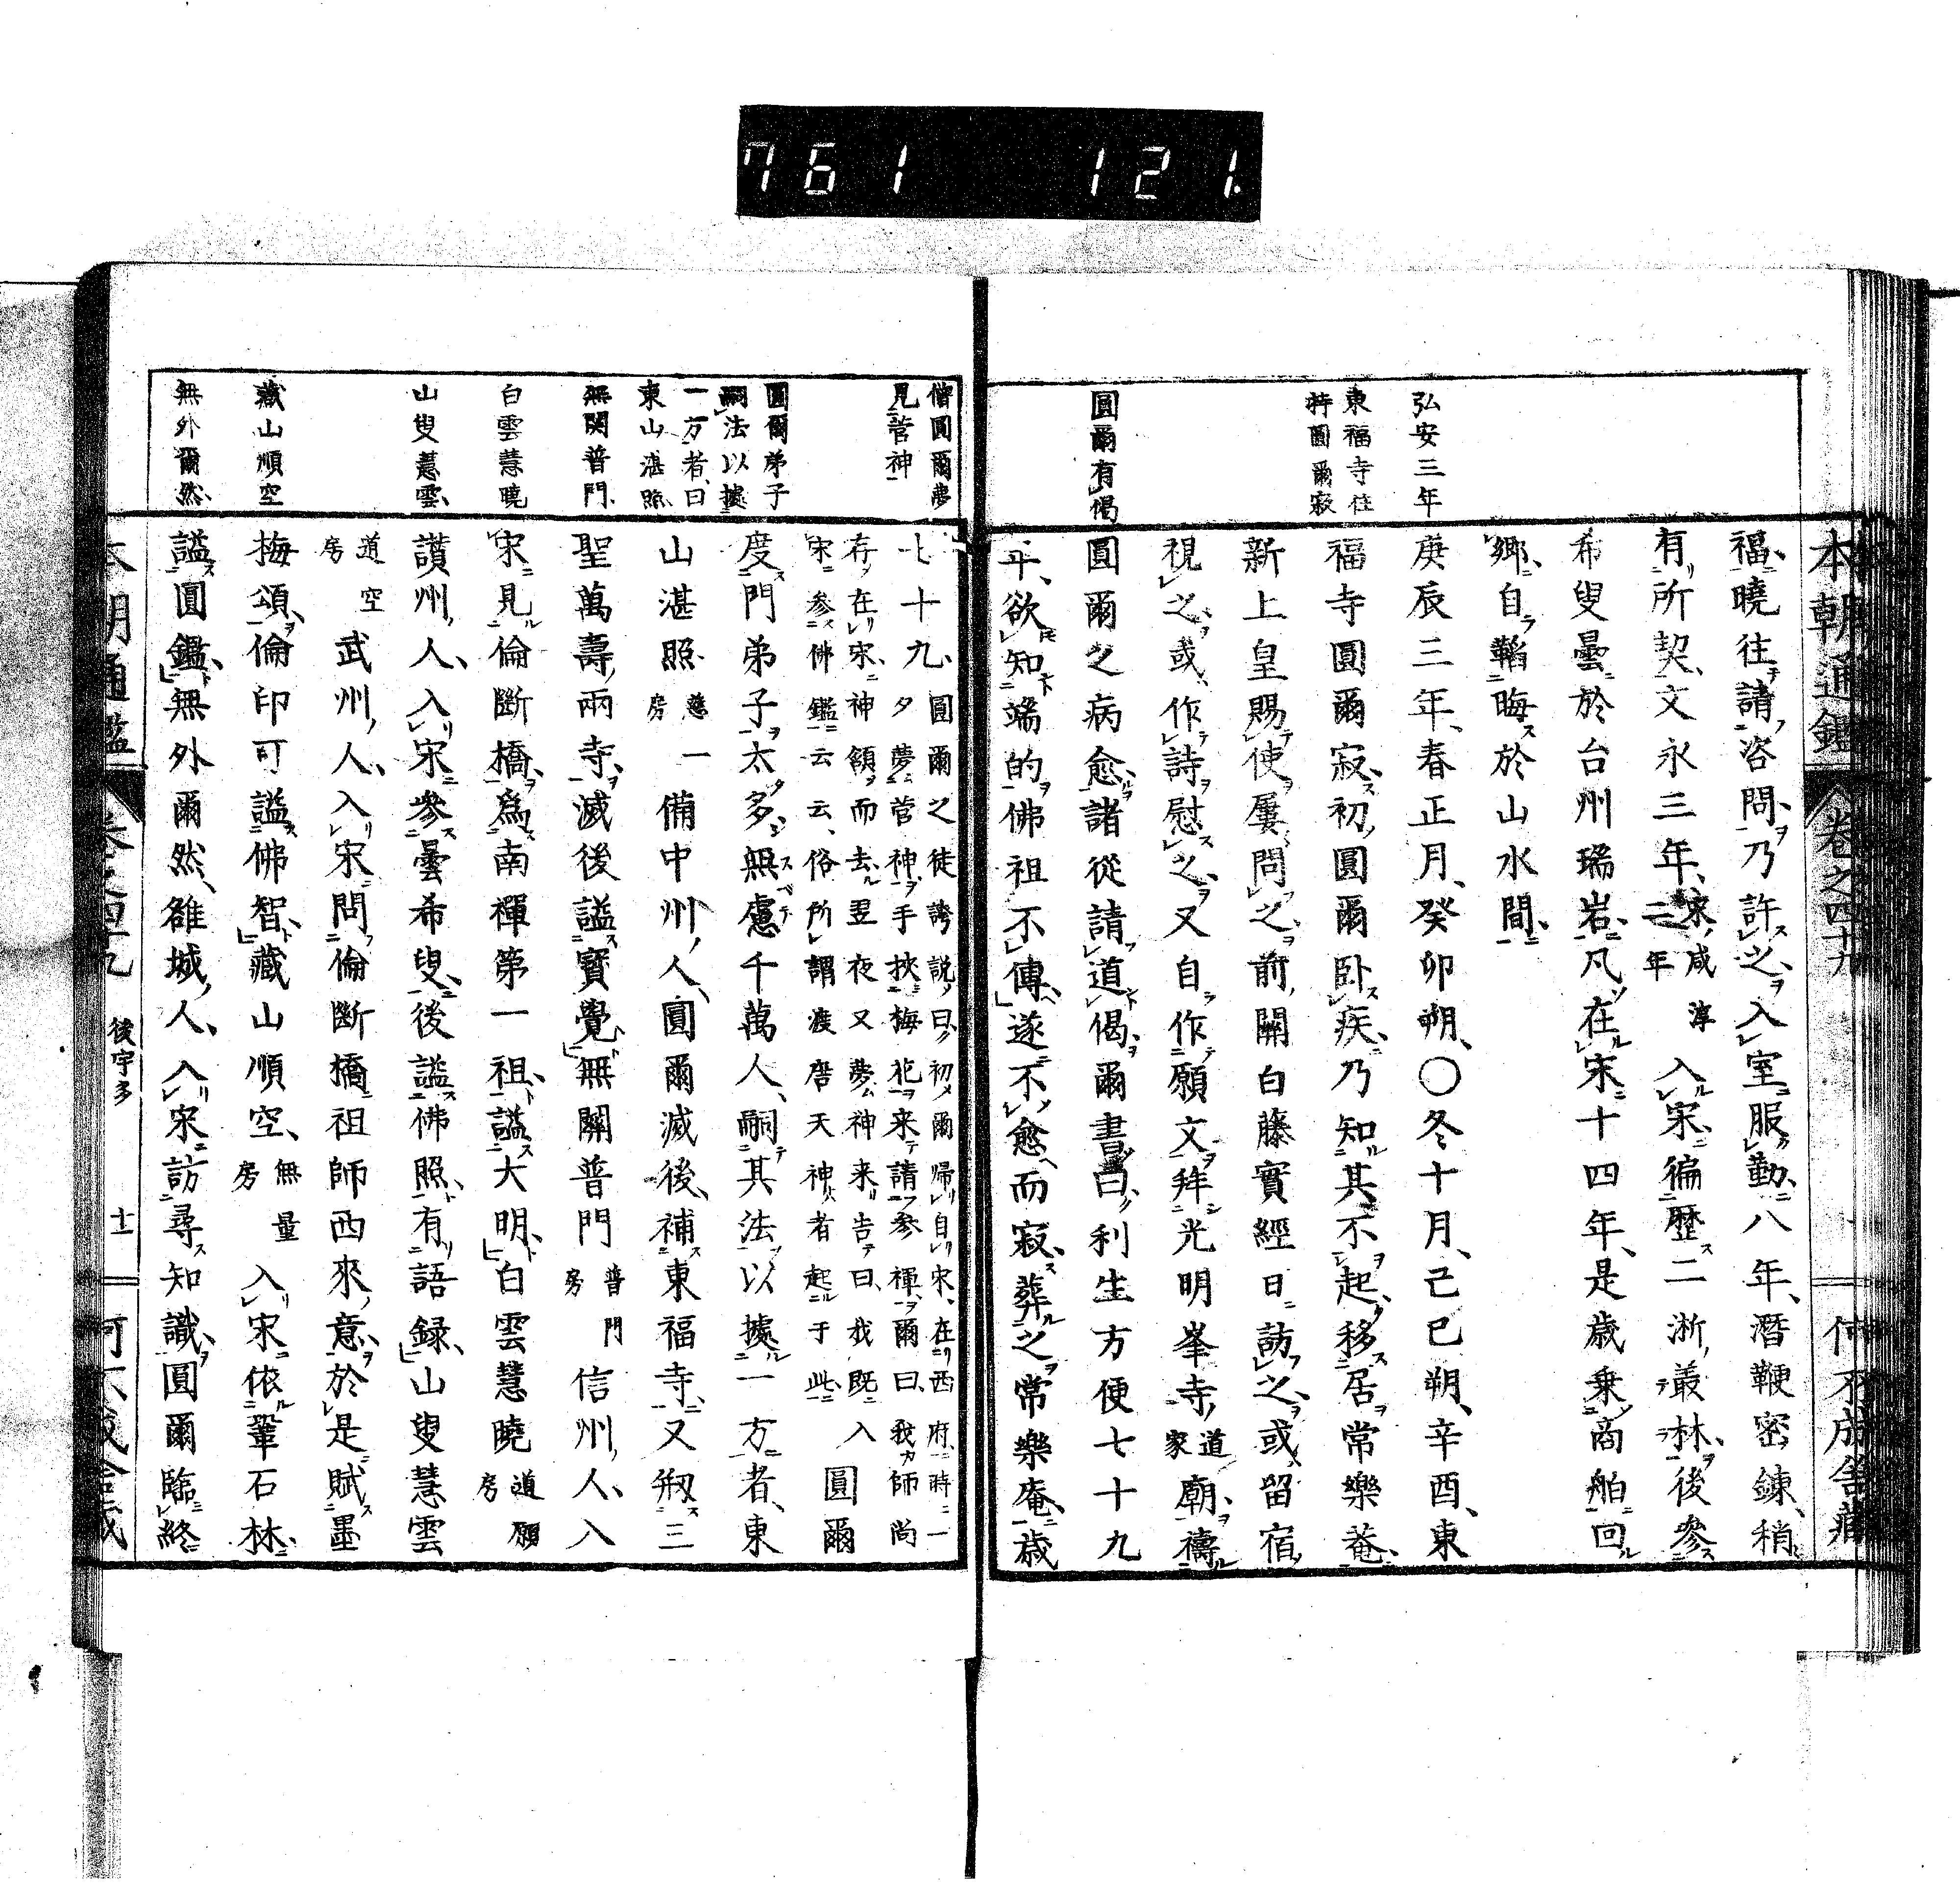 761 121.
本朝通鑑 卷之四十九 何不成舍藏
福曉往請咨問乃許之入室服勤八年潛鞭密錬稍
有所契文永三年宋咸淳二年入宋徧歷二浙叢林後參
希叟曇於台州瑞岩凡在宋十四年是歲乗商舶回
鄉自韜晦於山水間
弘安三年
庚辰三年春正月癸卯朔〇冬十月己巳朔辛酉東
東福寺住
持圓爾寂
福寺圓爾寂初圓爾卧疾乃知其不起移居常樂菴
新上皇賜使屢問之前關白藤實經日訪之或留宿
視之或作詩慰之又自作願文拜光明峯寺道家廟禱
圓爾有偈
圓爾之病愈諸從請道偈爾書曰利生方便七十九
年欲知端的佛祖不傳遂不愈而寂葬之常樂庵歲
僧圓爾夢
見菅神
七十九圓爾之徒誇說曰初爾歸自宋在西府時一
夕夢菅神手挾梅花来請參禪爾曰我師尚
存在宋神領而去翌夜又夢神来告曰我既入
宋參佛鑑云云俗所謂渡唐天神者起于此圓爾
圓爾弟子
嗣法以據
一方者曰
東山湛照
度門弟子太多無慮千萬人嗣其法以據一方者東
山湛照慈一房備中州人圓爾滅後補東福寺又剏三
無関普門
聖萬壽兩寺滅後謚寶覺無關普門普門房信州人入
白雲慧曉
宋見倫斷橋為南禪第一祖謚大明白雲慧曉道願房
山叟慧雲
讚州人入宋參曇希叟後謚佛照有語録山叟慧雲
道空房武州人入宋問倫斷橋祖師西來意於是賦墨
藏山順空
梅頌倫印可謚佛智藏山順空無量房入宋依鞏石林
無外爾然
謚圓鑑無外爾然雒城人入宋訪尋知識圓爾臨終
本朝通鑑 卷之四十九 後宇多 十一 何不成舍藏